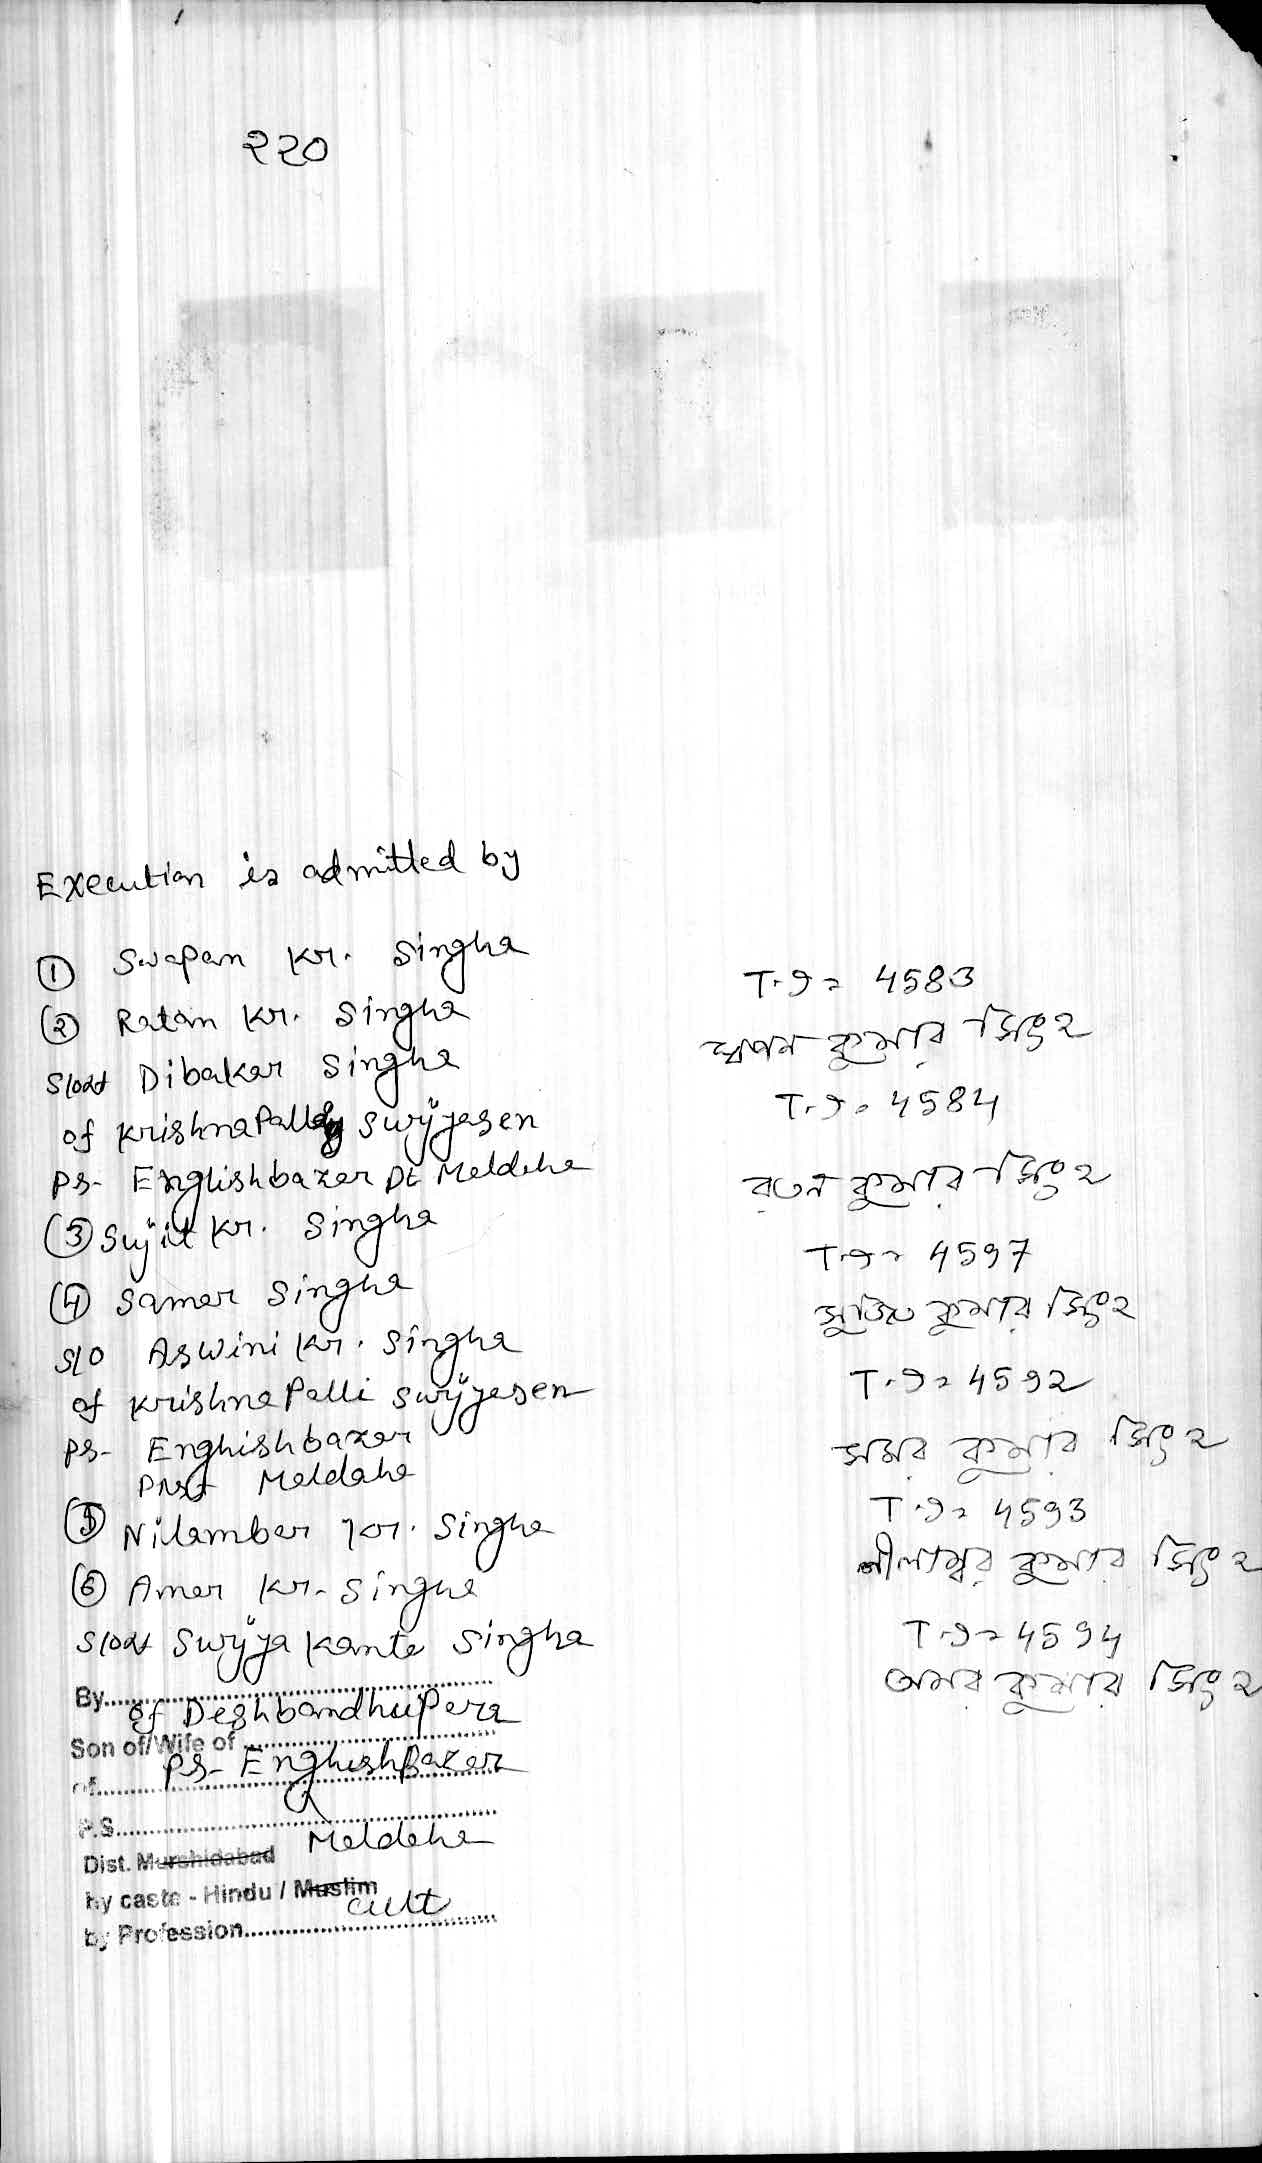 ২২০
Execution is admitted by
① Swapan Kr. Singha
② Ratan Kr. Singha
Dibakar Singha
of Krishnapally Surjyasen
PS- Englishbazar Dt Maldaha
③ Sujit Kr. Singha
④ Samar Singha
S/O Aswini Kr. Singha
of Krishna Palli Surjyasen
PS- Englishbazar
Maldaha
⑤ Nilambar Kr. Singha
⑥ Amar Kr. Singha
Surjya Kanta Singha
By
of Deshbandhupara
Son of/Wife of
PS- Englishbazar
of
P.S
Dist. Murshidabad Maldaha
by caste - Hindu / Muslim
by Profession cult
4583
স্বপন কুমার সিংহ
4584
রতন কুমার সিংহ
4597
সুজিত কুমার সিংহ
4592
সমর কুমার সিংহ
4593
নীলাম্বর কুমার সিংহ
4594
অমর কুমার সিংহ